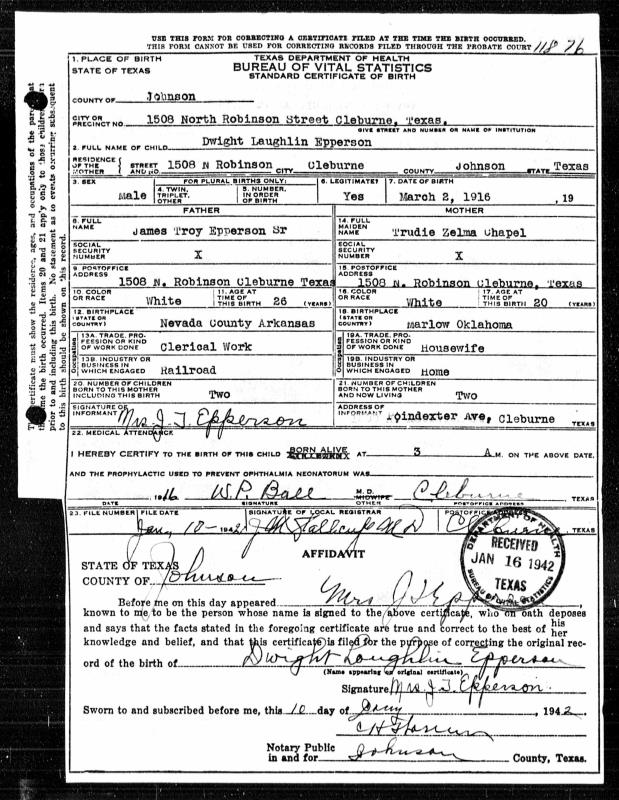 USE THIS FORM FOR CORRECTING A CERTIFICATE FILED AT THE TIME THE BIRTH OCCURRED.
THIS FORM CANNOT BE USED FOR CORRECTING RECORDS FILED THROUGH THE PROBATE COURT
1. PLACE OF BIRTH TEXAS DEPARTMENT OF HEALTH
STATE OF TEXAS BUREAU OF VITAL STATISTICS
STANDARD CERTIFICATE OF BIRTH
COUNTY OF Johnson
CITY OR PRECINCT NO. 1508 North Robinson Street Cleburne, Texas.
GIVE STREET AND NUMBER OR NAME OF INSTITUTION
2. FULL NAME OF CHILD Dwight Laughlin Epperson
RESIDENCE OF THE MOTHER STREET AND NO. 1508 N Robinson CITY Cleburne COUNTY Johnson STATE Texas
3. SEX Male
FOR PLURAL BIRTHS ONLY:
4. TWIN, TRIPLET, OTHER
5. NUMBER, IN ORDER OF BIRTH
6. LEGITIMATE? Yes
7. DATE OF BIRTH March 2, 1916 , 19
FATHER
8. FULL NAME James Troy Epperson Sr
SOCIAL SECURITY NUMBER X
9. POSTOFFICE ADDRESS 1508 N. Robinson Cleburne Texas
10. COLOR OR RACE White
11. AGE AT TIME OF THIS BIRTH 26 (YEARS)
12. BIRTHPLACE (STATE OR COUNTRY) Nevada County Arkansas
Occupation
13A. TRADE, PROFESSION OR KIND OF WORK DONE Clerical Work
13B. INDUSTRY OR BUSINESS IN WHICH ENGAGED Railroad
MOTHER
14. FULL MAIDEN NAME Trudie Zelma Chapel
SOCIAL SECURITY NUMBER X
15. POSTOFFICE ADDRESS 1508 N. Robinson Cleburne, Texas
16. COLOR OR RACE White
17. AGE AT TIME OF THIS BIRTH 20 (YEARS)
18. BIRTHPLACE (STATE OR COUNTRY) Marlow Oklahoma
Occupation
19A. TRADE, PROFESSION OR KIND OF WORK DONE Housewife
19B. INDUSTRY OR BUSINESS IN WHICH ENGAGED Home
20. NUMBER OF CHILDREN BORN TO THIS MOTHER INCLUDING THIS BIRTH Two
21. NUMBER OF CHILDREN BORN TO THIS MOTHER AND NOW LIVING Two
SIGNATURE OF INFORMANT Mrs J. T. Epperson
ADDRESS OF INFORMANT Poindexter Ave, Cleburne TEXAS
22. MEDICAL ATTENDANCE
I HEREBY CERTIFY TO THE BIRTH OF THIS CHILD BORN ALIVE AT 3 A.M. ON THE ABOVE DATE.
AND THE PROPHYLACTIC USED TO PREVENT OPHTHALMIA NEONATORUM WAS
1916 W.P. Ball M.D. MIDWIFE OTHER Cleburne TEXAS
DATE SIGNATURE POSTOFFICE ADDRESS
23. FILE NUMBER FILE DATE SIGNATURE OF LOCAL REGISTRAR POSTOFFICE
Jan, 10 - 1942 TEXAS
AFFIDAVIT
DEPARTMENT OF HEALTH
RECEIVED
JAN 16 1942
TEXAS
BUREAU OF VITAL STATISTICS
STATE OF TEXAS
COUNTY OF Johnson
Before me on this day appeared Mrs J T Epp
known to me to be the person whose name is signed to the above certificate, who on oath deposes
and says that the facts stated in the foregoing certificate are true and correct to the best of his her
knowledge and belief, and that this certificate is filed for the purpose of correcting the original rec-
ord of the birth of Dwight Loughlin Epperson
(Name appearing on original certificate)
Signature Mrs. J. T. Epperson.
Sworn to and subscribed before me, this 10 day of Jany 1942
Notary Public in and for Johnson County, Texas.
certificate must show the residence, ages, and occupations of the
me the birth occurred. Items 20 and 21 apply only to those children
prior to and including this birth. No statement as to events occurring subsequent
to this birth should be shown on this record.